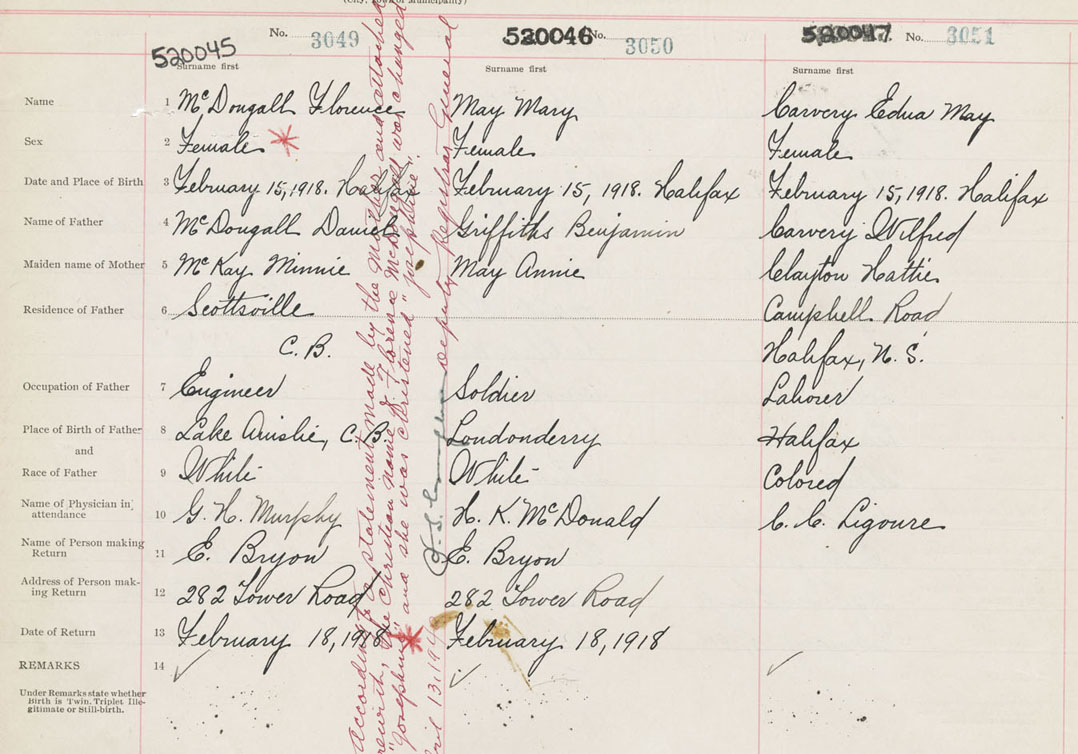 (City, Town or Municipality)
No. 3049
520045
Surname first
520046
No. 3050
Surname first
520047
No. 3051
Surname first
Name 1 McDougall Florence May Mary Carvery Edna May
Sex 2 Female * Female Female
Date and Place of Birth 3 February 15, 1918. Halifax February 15, 1918. Halifax February 15, 1918. Halifax
Name of Father 4 McDougall Daniel Griffiths Benjamin Carvery Wilfred
Maiden name of Mother 5 McKay Minnie May Annie Clayton Hattie
Residence of Father 6 Scottsville Campbell Road
C. B. Halifax, N. S.
Occupation of Father 7 Engineer Soldier Laborer
Place of Birth of Father 8 Lake Ainslie, C. B. Londonderry Halifax
and
Race of Father 9 White White Colored
Name of Physician in attendance 10 G. H. Murphy H. K. McDonald C. C. Ligoure
Name of Person making Return 11 E. Bryon E. Bryon
Address of Person making Return 12 282 Tower Road 282 Tower Road
Date of Return 13 February 18, 1918 * February 18, 1918
REMARKS 14
Under Remarks state whether
Birth is Twin, Triplet Ille-
gitimate or Still-birth.
According to a statement made by the Mother and attached
herewith, the Christian name of Florence McDougall was changed
"Josephine" and she was christened "Josephine"
April 13, 194
deputy Registrar General